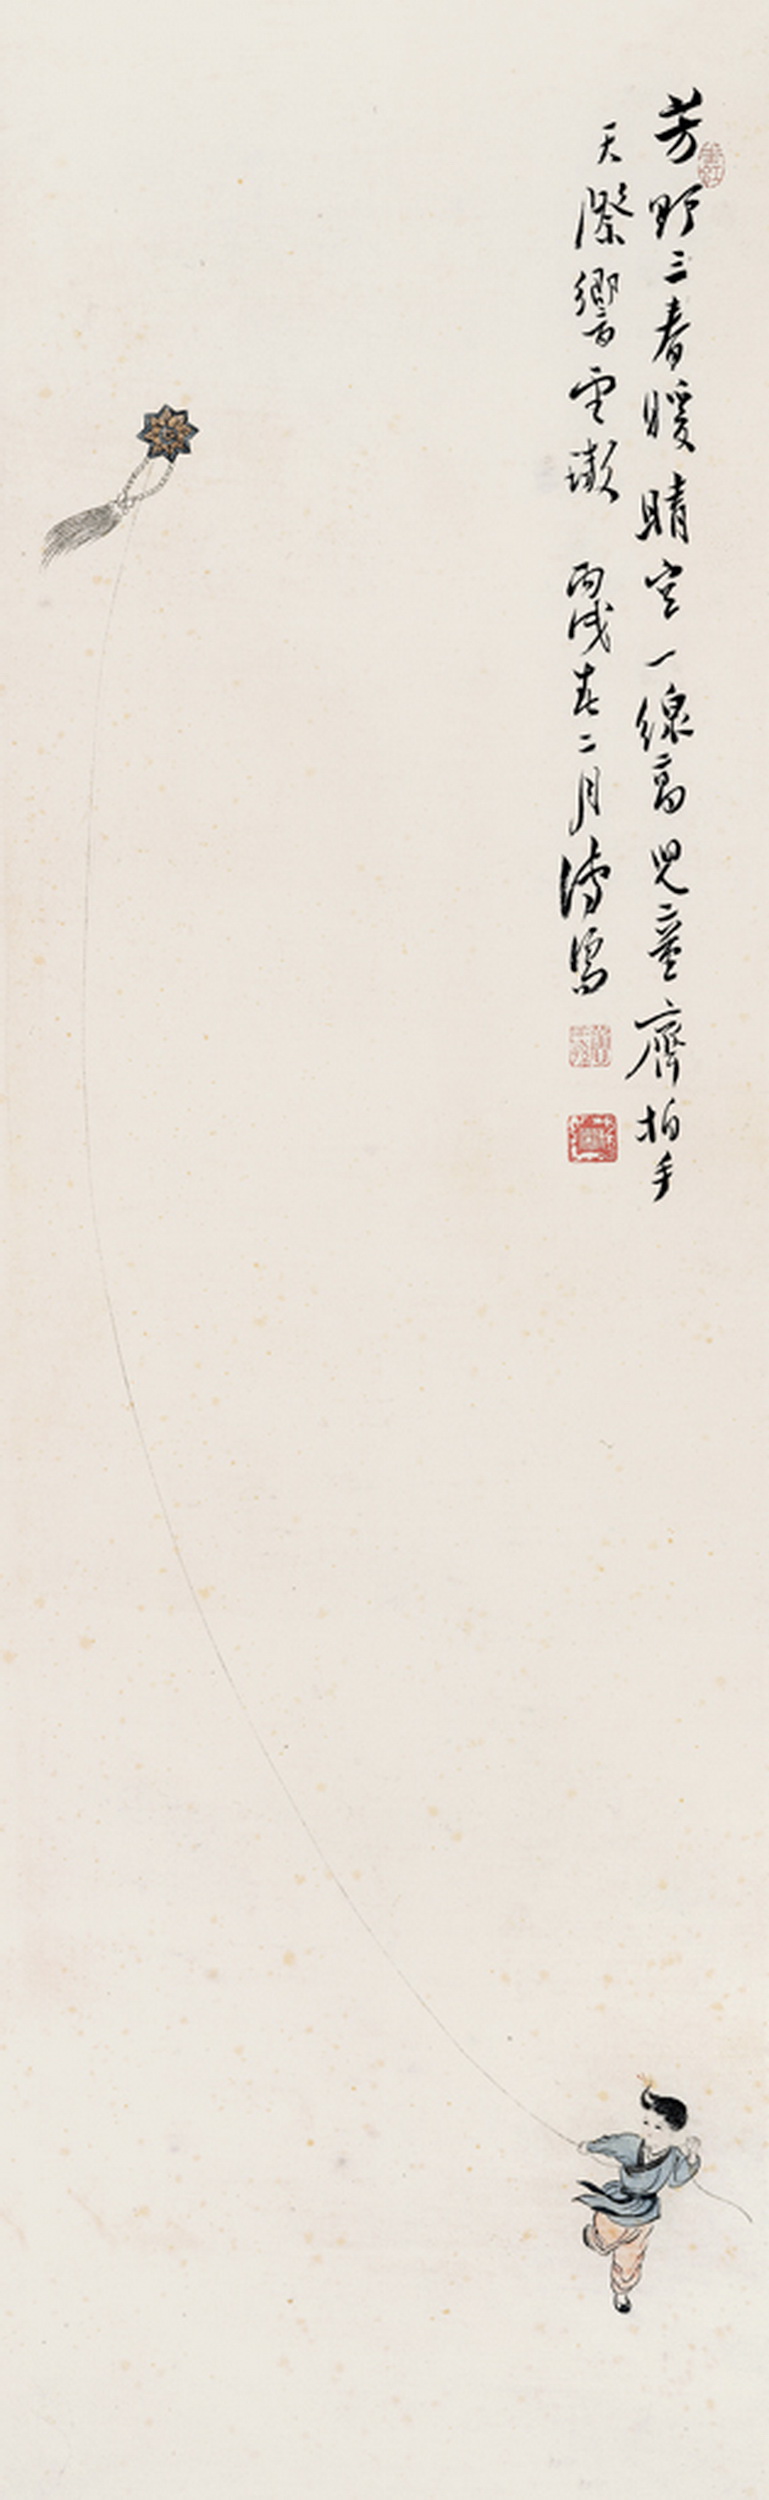 芳野三春暖晴空一線高児童齊拍手
天際響雲璈 丙戌春二月溥儒